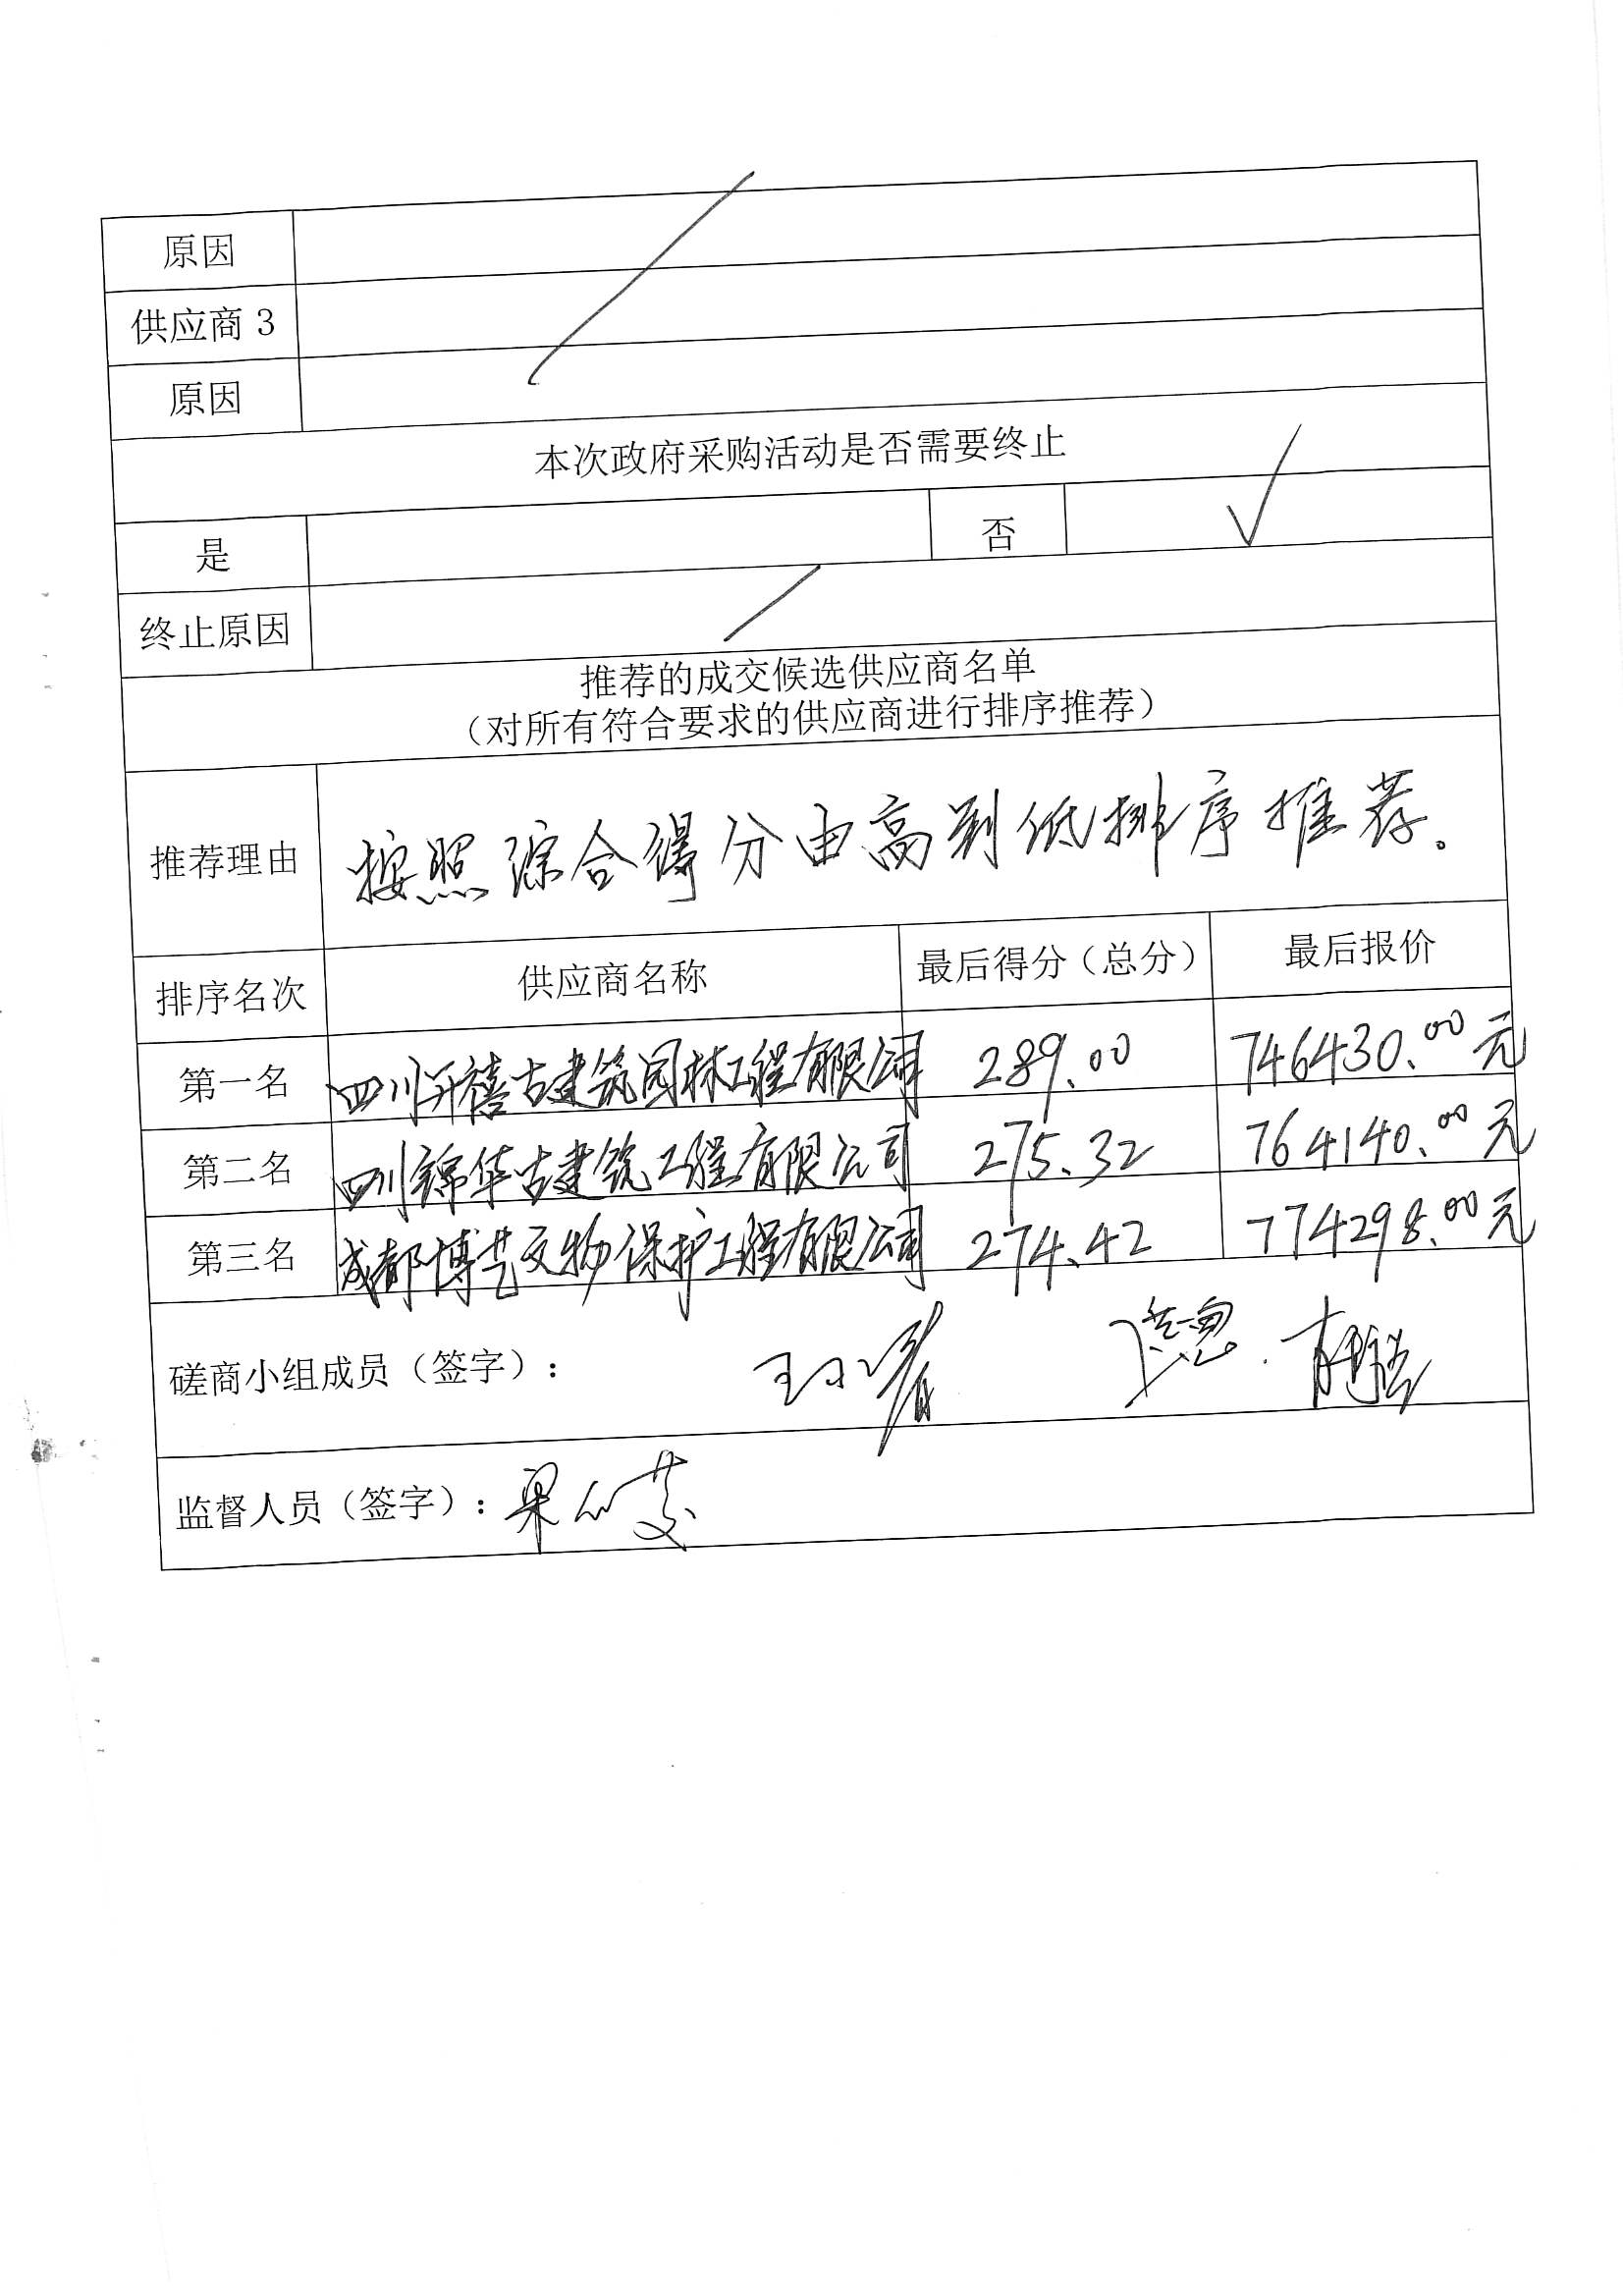 原因
供应商 3
原因
本次政府采购活动是否需要终止
是 否 √
终止原因
推荐的成交候选供应商名单
（对所有符合要求的供应商进行排序推荐）
推荐理由 按照综合得分由高到低排序推荐。
排序名次 供应商名称 最后得分（总分） 最后报价
第一名 四川开禧古建筑园林工程有限公司 289.00 746430.00元
第二名 四川锦华古建筑工程有限公司 275.32 764140.00元
第三名 成都博艺文物保护工程有限公司 274.42 774298.00元
磋商小组成员（签字）：
监督人员（签字）：